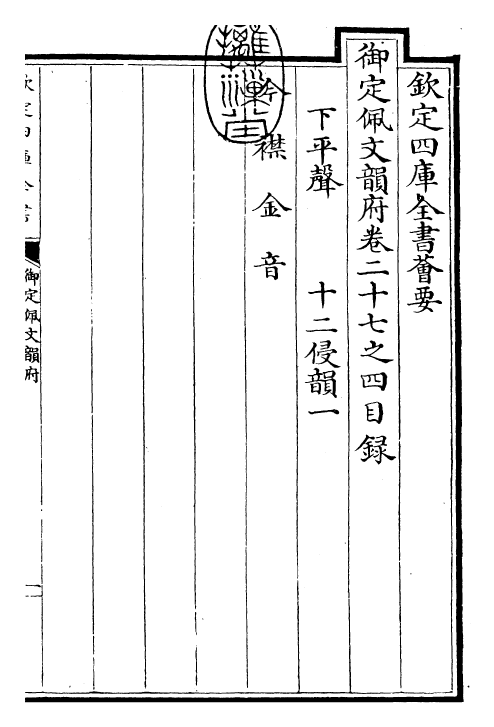 欽定四庫全書薈要
御定佩文韻府卷二十七之四目錄
下平聲 十二侵韻一
今 襟 金 音
欽定四庫全書
御定佩文韻府
一